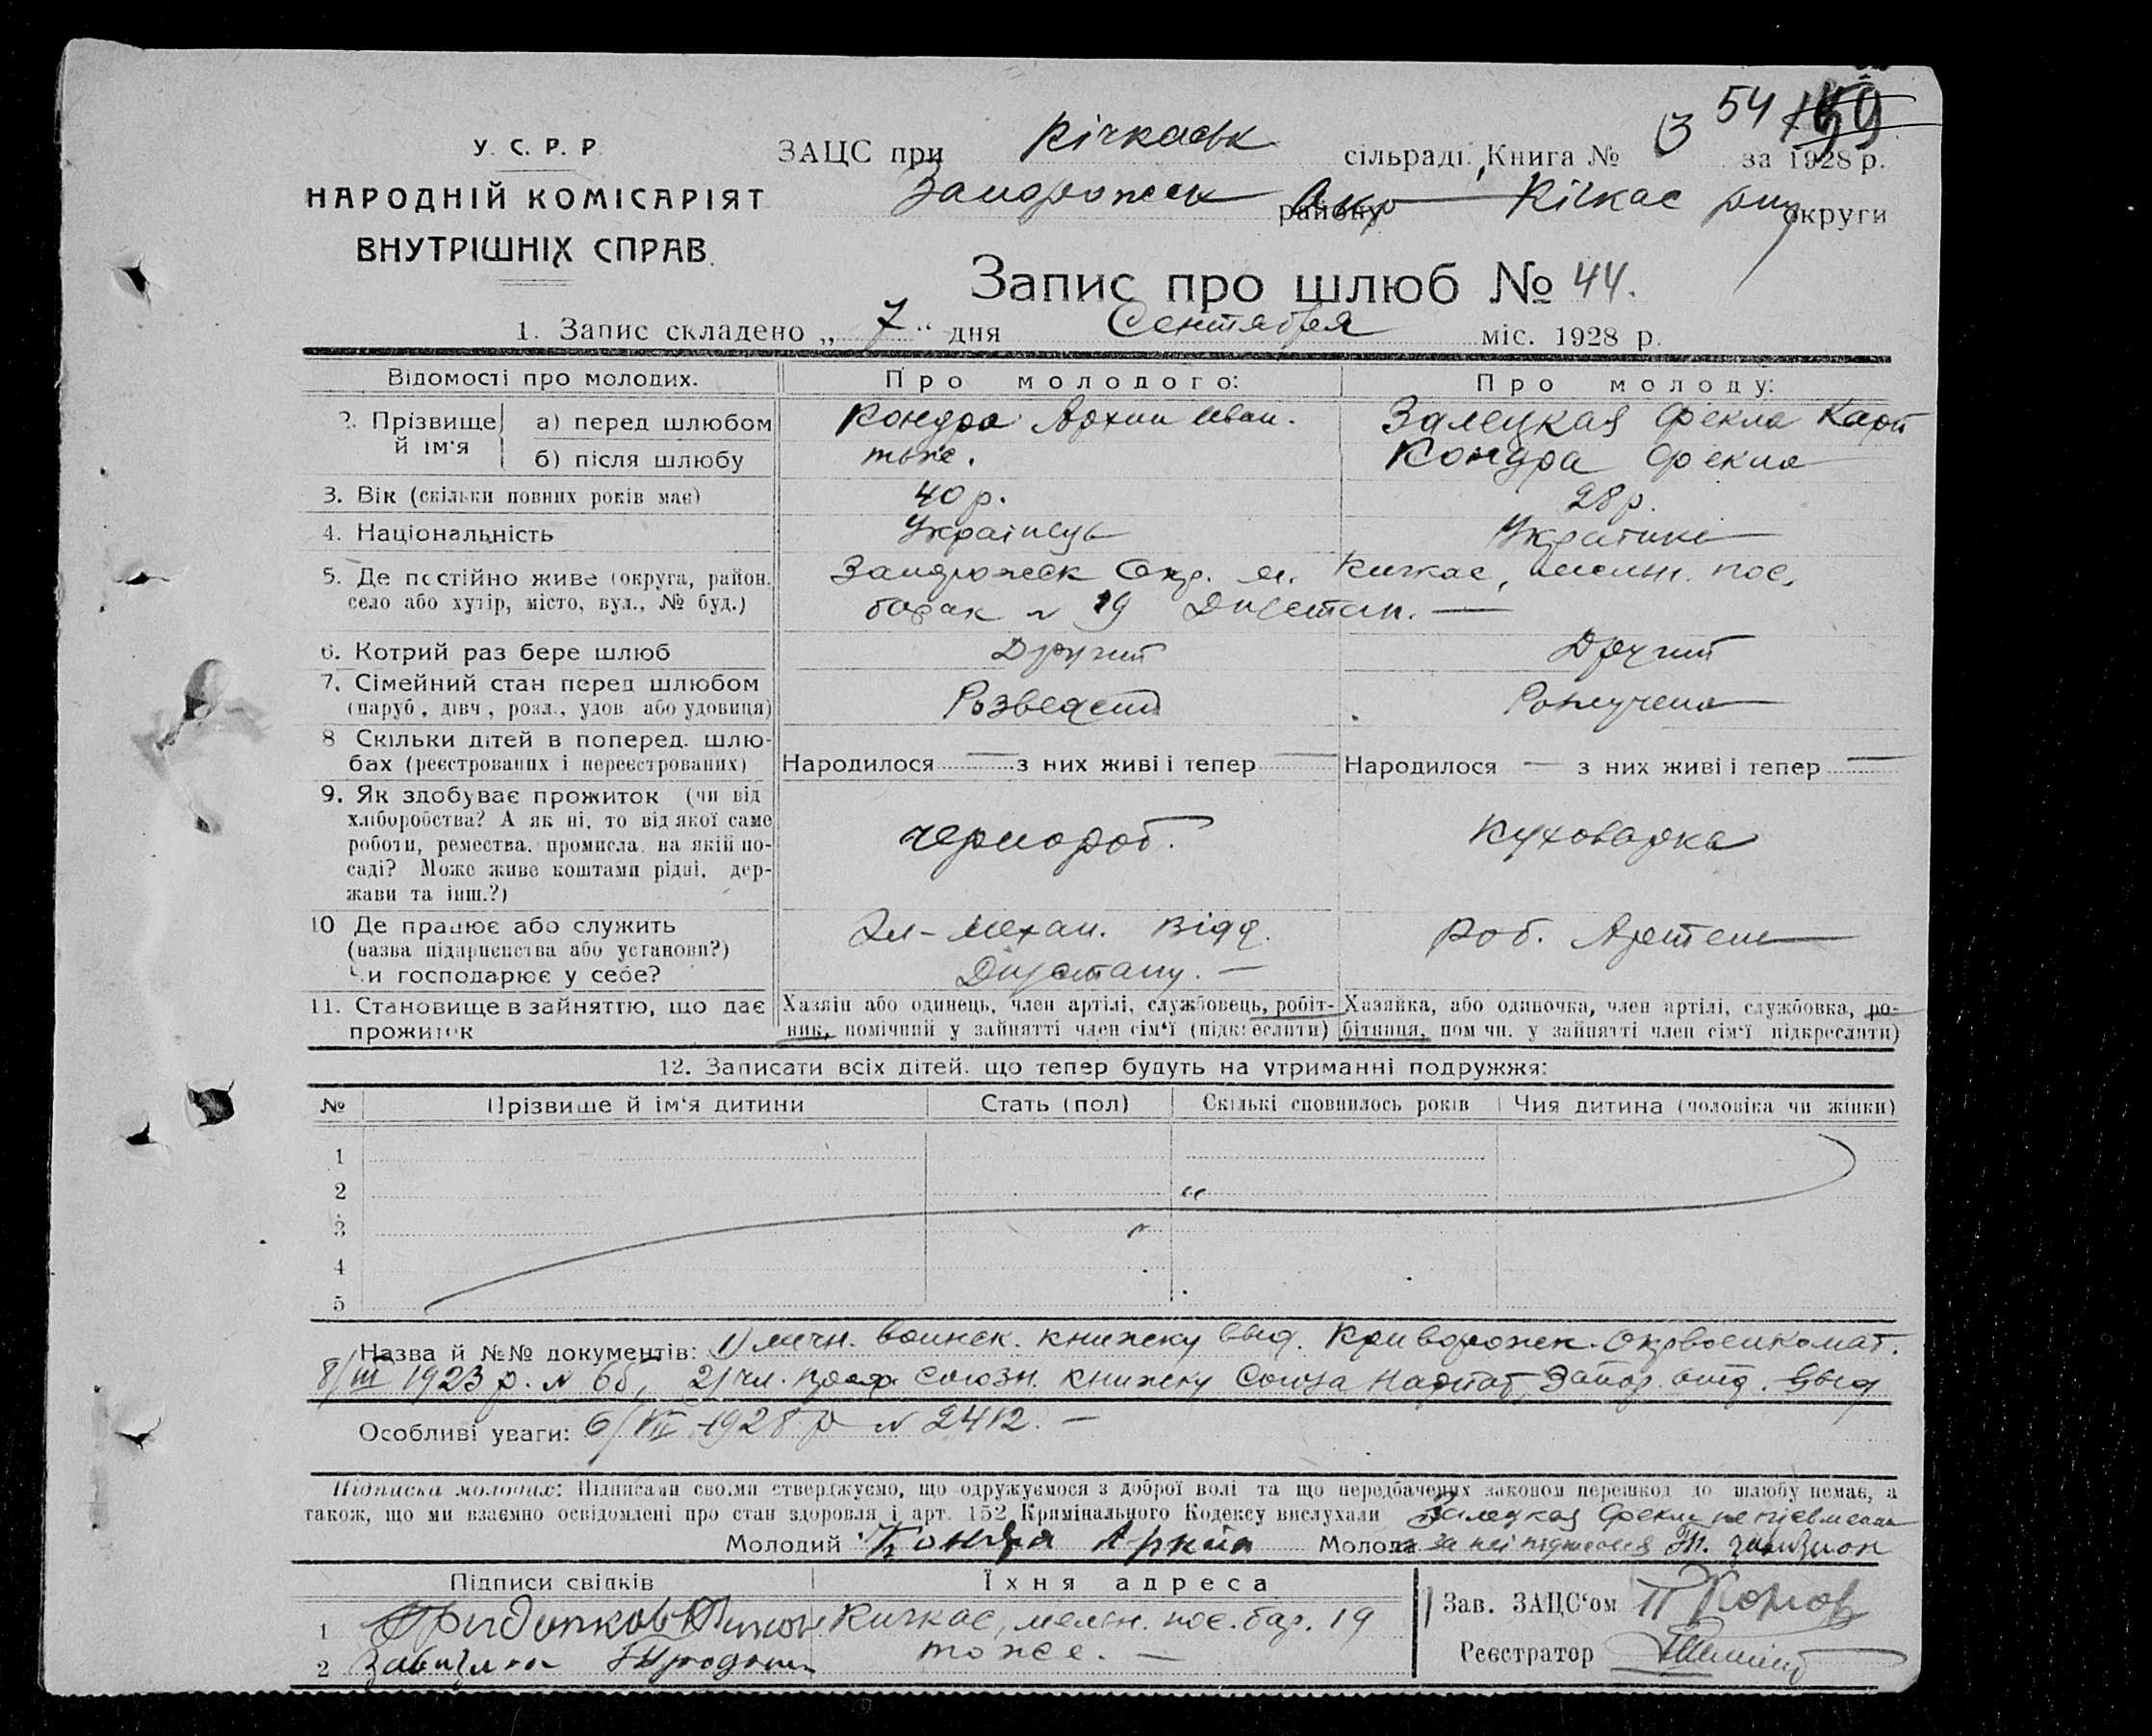 54
У. С. Р. Р.
НАРОДНІЙ КОМІСАРІЯТ
ВНУТРІШНІХ СПРАВ.
ЗАЦС при Кічкаськ сільраді, Книга № 3 за 1928 р.
Запорожск району Окр Кічкас округи
Запис про шлюб № 44.
1. Запис складено „ 7 “ дня Сентября міс. 1928 р.
Відомості про молодих. Про молодого: Про молоду:
2. Прізвище й ім'я а) перед шлюбом Кондра Архип Иван. Залецкая Фекла Карп
б) після шлюбу тоже. Кондра Фекла
3. Вік (скільки повних років має) 40 р. 28 р.
4. Національність Українець Українка
5. Де постійно живе (округа, район, Запорожск Окр. м. Кичкас, пос.
село або хутір, місто, вул., № буд.) барак № 19
6. Котрий раз бере шлюб Другий Другий
7. Сімейний стан перед шлюбом Розведений Розлучена
(паруб., дівч., розл., удов. або удовиця)
8 Скільки дітей в поперед. шлю-
бах (реєстрованих і нереєстрованих) Народилося — з них живі і тепер — Народилося — з них живі і тепер —
9. Як здобуває прожиток (чи від
хліборобства? А як ні, то від якої саме
роботи, ремества, промисла, на якій по- чернороб. Куховарка
саді? Може живе коштами рідні, дер-
жави та інш.?)
10 Де працює або служить Эл-механ. Відд. Роб. Артели
(назва підприємства або установи?)
Чи господарює у себе?
11. Становище в зайняттю, що дає Хазяїн або одинець, член артілі, службовець, робіт- Хазяйка, або одиночка, член артілі, службовка, ро-
прожиток ник, помічний у зайнятті член сім'ї (підкреслити) бітниця, помічн. у зайнятті член сім'ї підкреслити)
12. Записати всіх дітей, що тепер будуть на утриманні подружжя:
№ Прізвище й ім'я дитини Стать (пол) Скількі сповнилось років Чия дитина (чоловіка чи жінки)
1
2
3
4
5
Назва й №№ документів: 1) личн. воинск. книжку выд. Криворожск. Окрвоенкомат.
8/III 1923 р. № 65, 2) чл. проф союзн. книжку Союза Нарпит, Запор. отд. выд
Особливі уваги: 6/VII 1928 р № 2412. —
Підписка молодих: Підписами своїми стверджуємо, що одружуємося з доброї волі та що передбачених законом перешкод до шлюбу немає, а
також, що ми взаємно освідомлені про стан здоровля і арт. 152 Кримінального Кодексу вислухали Залецкая Фекла
Молодий Кондра Архип Молода за неї
Підписи свідків Їхня адреса
1 Кичкас, пос. бар. 19 Зав. ЗАЦС'ом
2 тоже. — Реєстратор